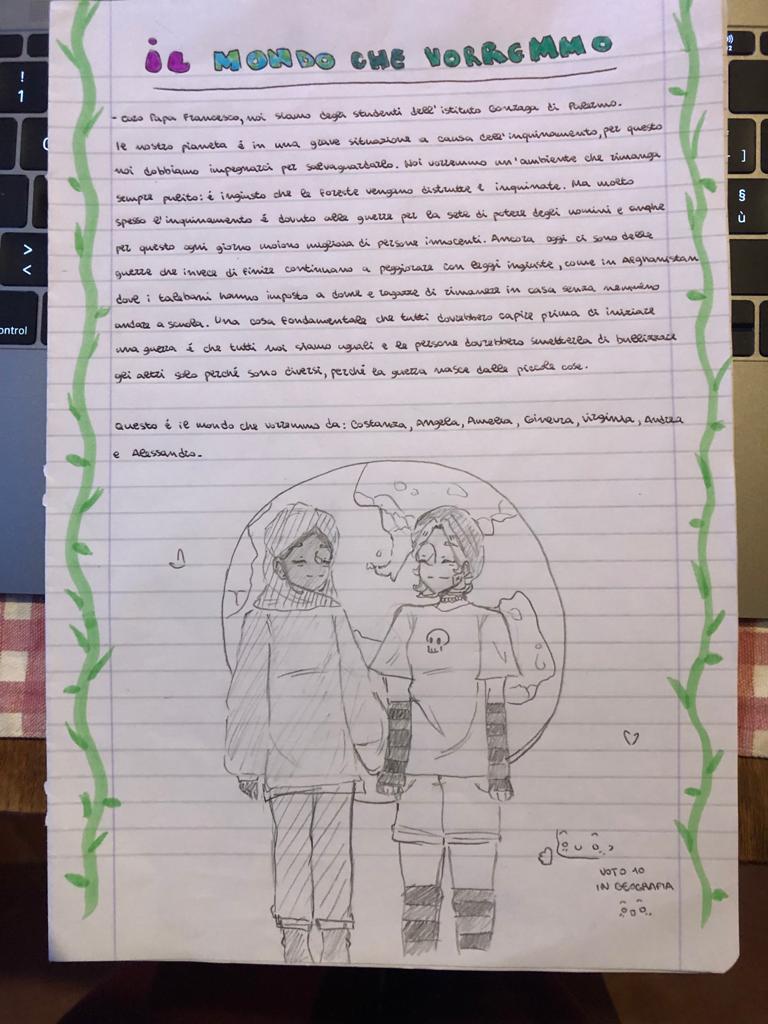 IL MONDO CHE VORREMMO
- Caro Papa Francesco, noi siamo degli studenti dell'istituto Gonzaga di Palermo.
Il nostro pianeta è in una grave situazione a causa dell'inquinamento, per questo
noi dobbiamo impegnarci per salvaguardarlo. Noi vorremmo un'ambiente che rimanga
sempre pulito: è ingiusto che le foreste vengano distrutte e inquinate. Ma molto
spesso l'inquinamento è dovuto alle guerre per la sete di potere degli uomini e anche
per questo ogni giorno moiono migliaia di persone innocenti. Ancora oggi ci sono delle
guerre che invece di finire continuano a peggiorare con leggi ingiuste, come in Afghanistan
dove i talebani hanno imposto a donne e ragazze di rimanere in casa senza nemmeno
andare a scuola. Una cosa fondamentale che tutti dovrebbero capire prima di iniziare
una guerra è che tutti noi siamo uguali e le persone dovrebbero smetterla di bullizzare
gli altri solo perché sono diversi, perché la guerra nasce dalle piccole cose.
Questo è il mondo che vorremmo da: Costanza, Angela, Amelia, Ginevra, Virginia, Andrea
e Alessandro.
VOTO 10
IN GEOGRAFIA
!
1
>
<
control
]
§
ù